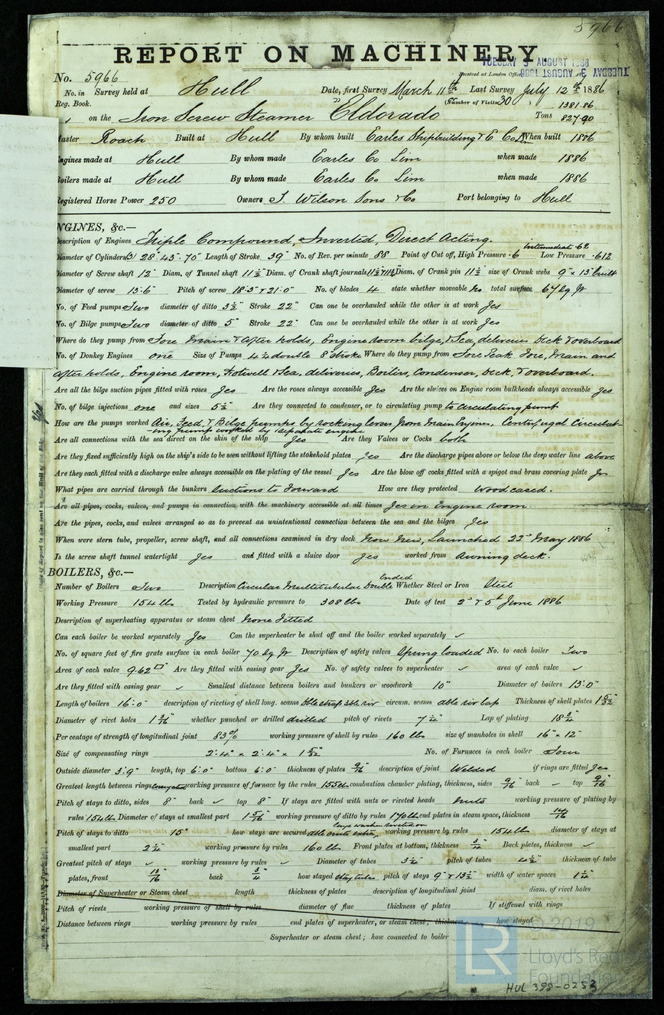 5966
REPORT ON MACHINERY.
TUESDAY 3 AUGUST 1886
No. 5966 Received at London Office
No. in Survey held at Hull Date, first Survey March 11th Last Survey July 12th 1886
Reg. Book. (Number of Visits 30) 1381.86
on the Iron Screw Steamer "Eldorado" Tons 827.90
Master Roach Built at Hull By whom built Earles Shipbuilding & E Co Lim When built 1886
Engines made at Hull By whom made Earles Co Lim when made 1886
Boilers made at Hull By whom made Earles Co Lim when made 1886
Registered Horse Power 250 Owners T. Wilson Sons & Co Port belonging to Hull
ENGINES, &c.—
Description of Engines Triple Compound, Inverted, Direct Acting.
Diameter of Cylinders 28" 43" 70" Length of Stroke 39" No. of Rev. per minute 88 Point of Cut off, High Pressure .6 Intermediate .62 Low Pressure .612
Diameter of Screw shaft 12" Diam. of Tunnel shaft 11½" Diam. of Crank shaft journals Diam. of Crank pin 11½" size of Crank webs 9" x 15" built
Diameter of screw 13.6" Pitch of screw 18.3" & 21.0" No. of blades 4 state whether moveable Yes total surface 67 sq ft
No. of Feed pumps Two diameter of ditto 3½" Stroke 22" Can one be overhauled while the other is at work Yes
No. of Bilge pumps Two diameter of ditto 5" Stroke 22" Can one be overhauled while the other is at work Yes
Where do they pump from Fore Main & After holds, Engine room bilge, & Sea, deliveries Deck & overboard
No. of Donkey Engines one Size of Pumps 4½ double 8" stroke Where do they pump from Fore Peak Fore, Main and
after holds, Engine room, Hotwell & Sea, deliveries, Boiler, Condenser, Deck, & overboard.
Are all the bilge suction pipes fitted with roses Yes Are the roses always accessible Yes Are the sluices on Engine room bulkheads always accessible Yes
No. of bilge injections one and sizes 5½ Are they connected to condenser, or to circulating pump to circulating pump
How are the pumps worked Air, Feed, & Bilge pumps by rocking levers from main engines, Centrifugal Circulat-
ing pump worked by separate engine
Are all connections with the sea direct on the skin of the ship Yes Are they Valves or Cocks both
Are they fixed sufficiently high on the ship's side to be seen without lifting the stokehold plates Yes Are the discharge pipes above or below the deep water line above
Are they each fitted with a discharge valve always accessible on the plating of the vessel Yes Are the blow off cocks fitted with a spigot and brass covering plate Yes
What pipes are carried through the bunkers Suctions to Forward How are they protected wood cased.
Are all pipes, cocks, valves, and pumps in connection with the machinery accessible at all times Yes in Engine room
Are the pipes, cocks, and valves arranged so as to prevent an unintentional connection between the sea and the bilges Yes
When were stern tube, propeller, screw shaft, and all connections examined in dry dock New Ship, Launched 22nd May 1886
Is the screw shaft tunnel watertight Yes and fitted with a sluice door Yes worked from awning deck.
BOILERS, &c.—
Number of Boilers Two Description Circular Multitubular Double Ended Whether Steel or Iron Steel
Working Pressure 154 lb Tested by hydraulic pressure to 308 lbs Date of test 2nd & 5th June 1886
Description of superheating apparatus or steam chest None Fitted
Can each boiler be worked separately Yes Can the superheater be shut off and the boiler worked separately ✓
No. of square feet of fire grate surface in each boiler 70 sq ft Description of safety valves Spring loaded No. to each boiler Two
Area of each valve 9.62□" Are they fitted with easing gear Yes No. of safety valves to superheater ✓ area of each valve ✓
Are they fitted with easing gear ✓ Smallest distance between boilers and bunkers or woodwork 10" Diameter of boilers 13.0"
Length of boilers 16.0" description of riveting of shell long. seams dble strap dble riv circum. seams dble riv lap Thickness of shell plates
Diameter of rivet holes whether punched or drilled drilled pitch of rivets Lap of plating 18½"
Percentage of strength of longitudinal joint 83% working pressure of shell by rules 160 lb size of manholes in shell 16" x 12"
Size of compensating rings 2.4" x 2.4" x No. of Furnaces in each boiler Four
Outside diameter 3.9" length, top 6.0" bottom 6.0" thickness of plates 9/16 description of joint Welded if rings are fitted Yes
Greatest length between rings working pressure of furnace by the rules 155 lb combustion chamber plating, thickness, sides 9/16 back ✓ top 9/16
Pitch of stays to ditto, sides 8" back ✓ top 8" If stays are fitted with nuts or riveted heads nuts working pressure of plating by
rules 154 lb Diameter of stays at smallest part working pressure of ditto by rules end plates in steam space, thickness
Pitch of stays to ditto 15" how stays are secured working pressure by rules 154 lb diameter of stays at
smallest part 2½" working pressure by rules 160 lb Front plates at bottom, thickness Back plates, thickness ✓
Greatest pitch of stays ✓ working pressure by rules ✓ Diameter of tubes 3½" pitch of tubes 4¾" thickness of tube
plates, front 13/16 back 3/4 how stayed stay tubes pitch of stays 9" & 13½" width of water spaces
Diameter of Superheater or Steam chest length thickness of plates description of longitudinal joint diam. of rivet holes
Pitch of rivets working pressure of shell by rules diameter of flue thickness of plates If stiffened with rings
Distance between rings working pressure by rules end plates of superheater, or steam chest; thickness how stayed
Superheater or steam chest; how connected to boiler
© 2019
Lloyd's Register
Foundation
LR
HUL 398-0253